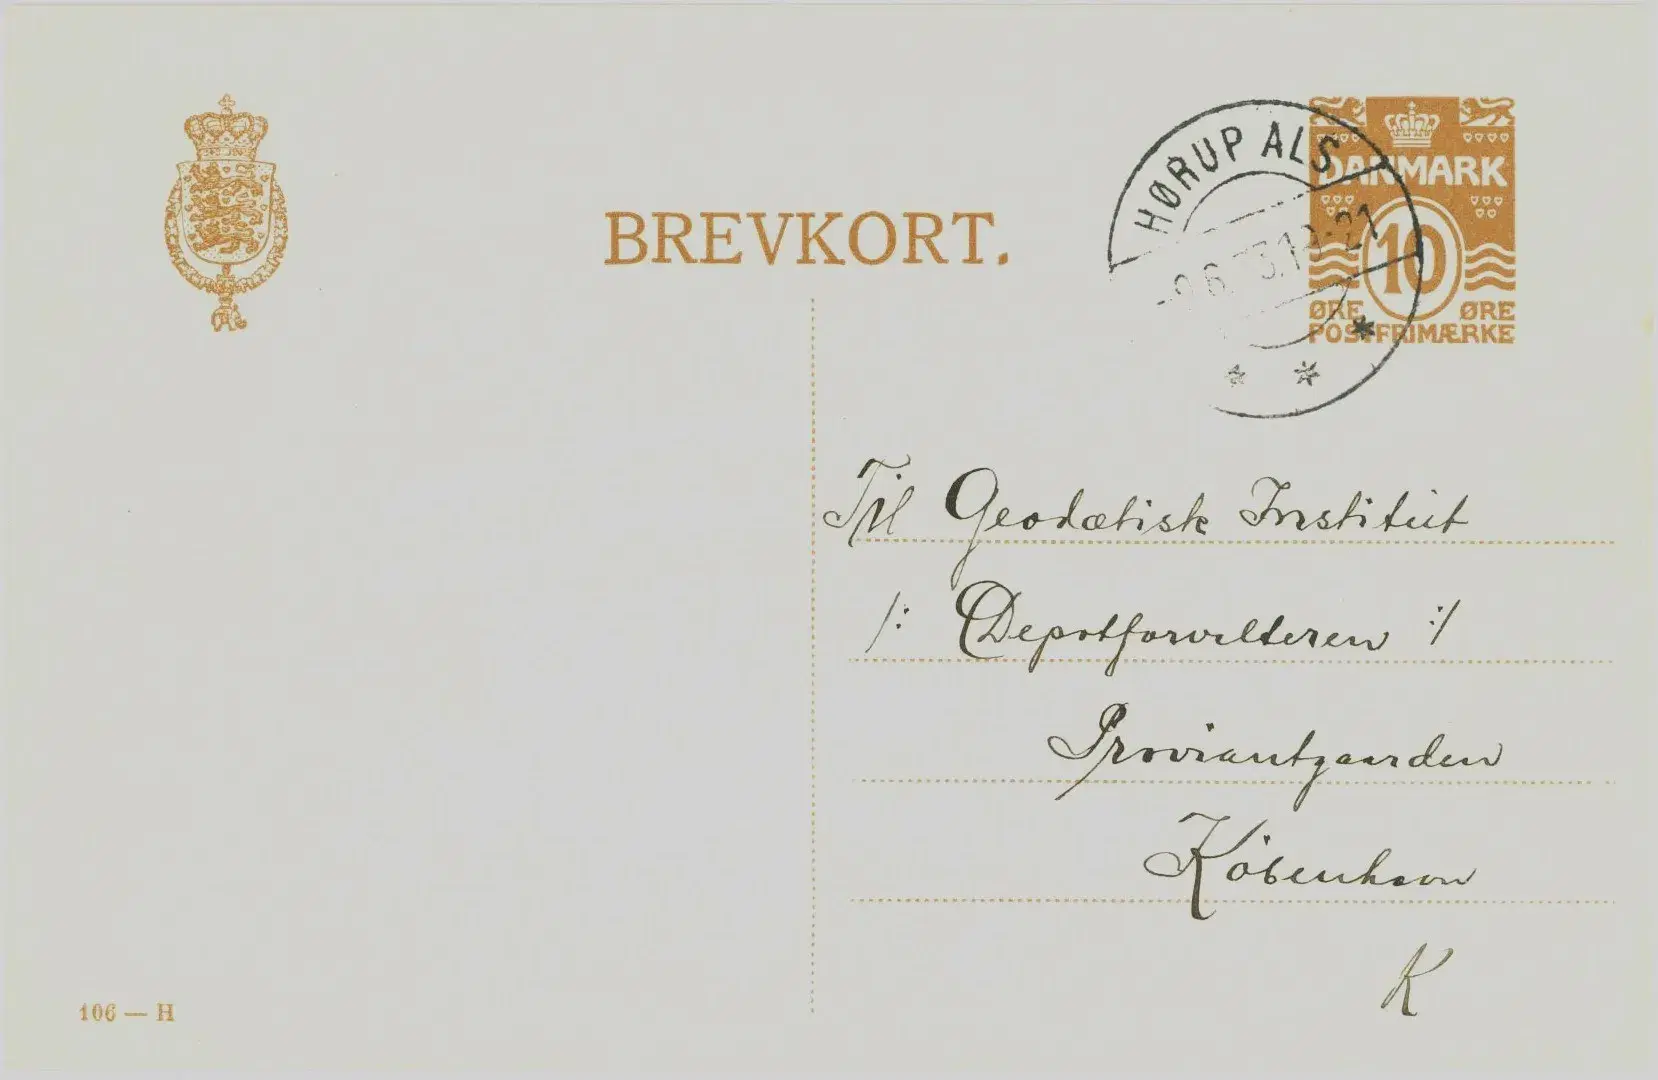 BREVKORT.
HØRUP ALS
19-21
DANMARK
10
ØRE ØRE
POSTFRIMÆRKE
Til Geodætisk Institut
/: Depotforvalteren :/
Proviantgaarden
København
K
106 — H